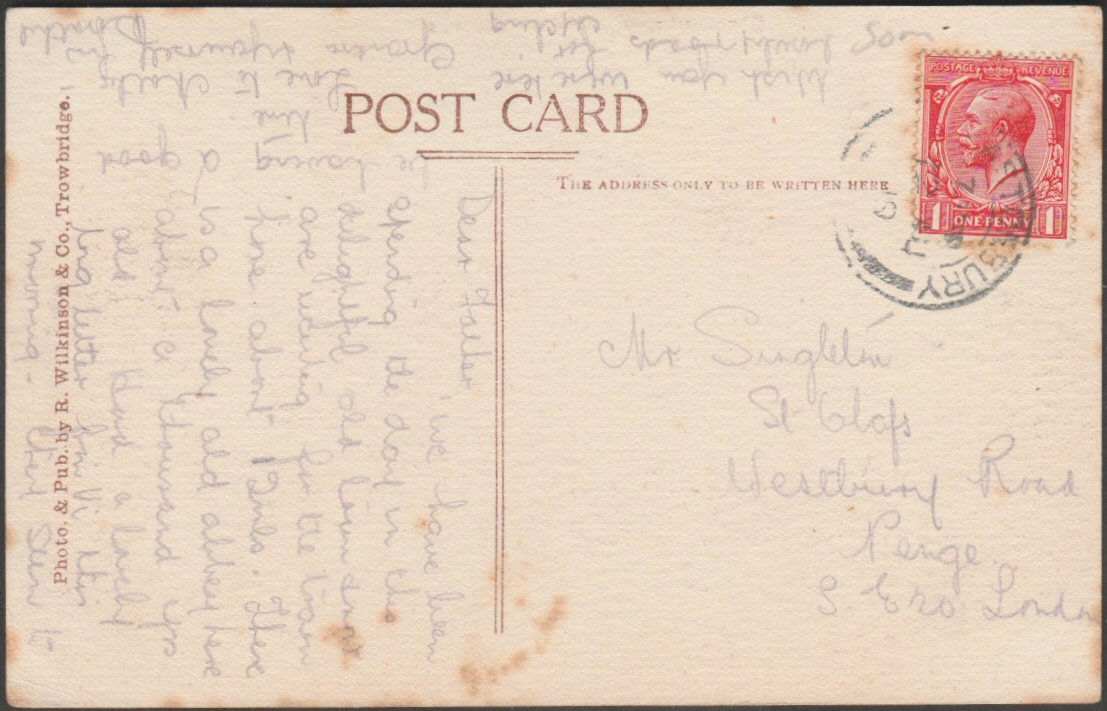 POST CARD
THE ADDRESS ONLY TO BE WRITTEN HERE
POSTAGE REVENUE
1 ONE PENNY 1
URY
Mr Singleton
St Olafs
Westbury Road
Penge
S E 20 London
Dear Father, we have been
spending the day in this
delightful old town and
are waiting for the train
home about There
is a lovely old abbey here
about a thousand yrs
old. Had a lovely
long letter from this
morning - they seem to
be having
a good
time
Love to
& yourself
Wish you were here
lovely roads for
cycling
Photo. & Pub. by R. Wilkinson & Co., Trowbridge.